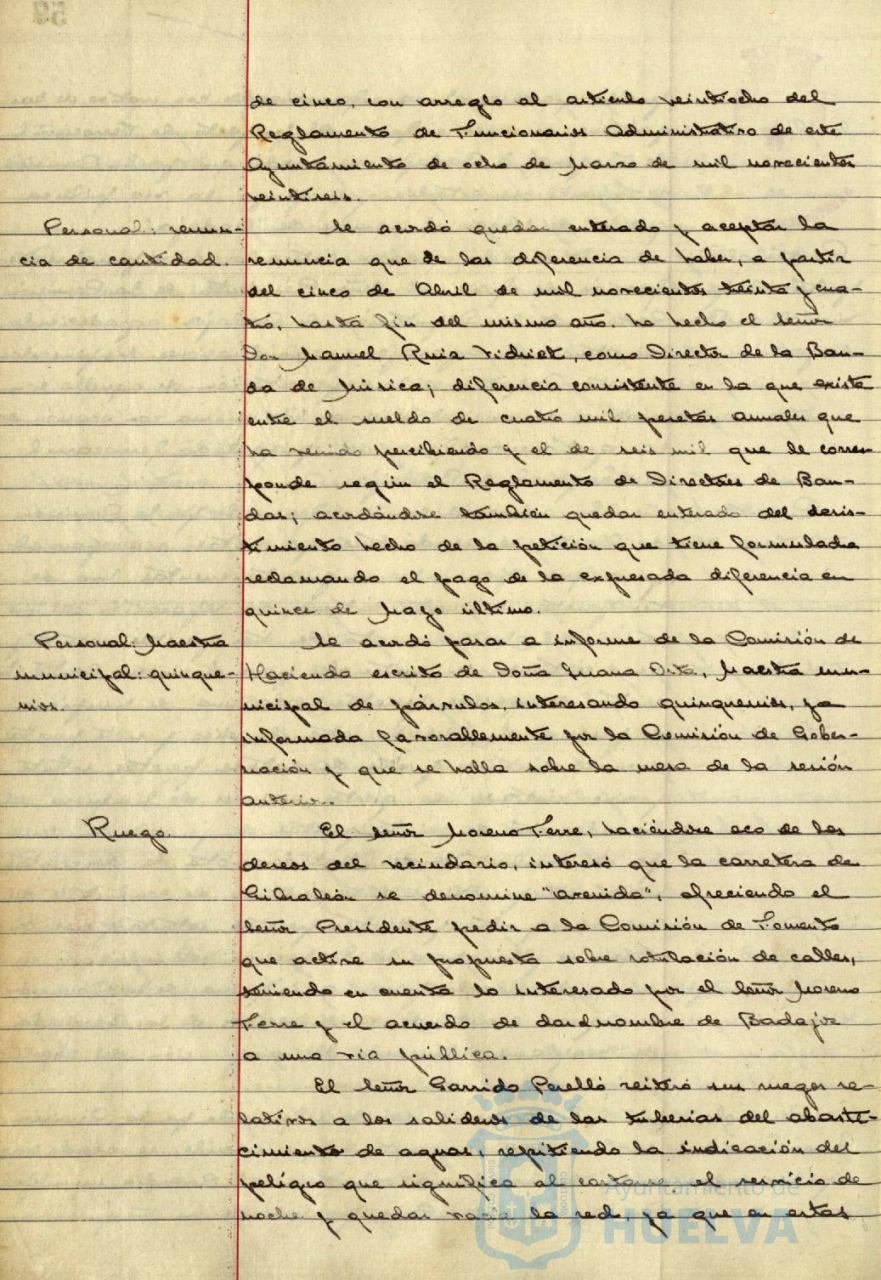 de cinco, con arreglo al artículo veintiocho del
Reglamento de Funcionarios Administrativo de este
Ayuntamiento de ocho de Marzo de mil novecientos
veintiseis.
Personal: renun-
cia de cantidad.
Se acordó quedar enterado y aceptar la
renuncia que de las diferencia de haber, a partir
del cinco de Abril de mil novecientos treinta y cua-
tro, hasta fin del mismo año, ha hecho el Señor
Don Manuel Ruiz Vidriet, como Director de la Ban-
da de Música; diferencia consistente en la que existe
entre el sueldo de cuatro mil pesetas anuales que
ha venido percibiendo y el de seis mil que le corres-
ponde según el Reglamento de Directores de Ban-
das; acordándose también quedar enterado del desis-
timiento hecho de la petición que tiene formulada
reclamando el pago de la expresada diferencia en
quince de Mayo último.
Personal: Maestra
municipal: quinque-
nios.
Se acordó pasar a informe de la Comisión de
Hacienda escrito de Doña Juana Orta, Maestra mu-
nicipal de párvulos, interesando quinquenios, ya
informada favorablemente por la Comisión de Gober-
nación y que se halla sobre la mesa de la sesión
anterior.
Ruego.
El Señor Moreno Ferre, haciéndose eco de los
deseos del vecindario, interesó que la carretera de
Gibraleón se denomine "avenida", ofreciendo el
Señor Presidente pedir a la Comisión de Fomento
que active su propuesta sobre rotulación de calles,
teniendo en cuenta lo interesado por el Señor Moreno
Ferre y el acuerdo de dar el nombre de Badajoz
a una vía pública.
El Señor Garrido Perelló reiteró sus ruegos re-
lativos a los salideros de las tuberias del abaste-
cimiento de aguas, repitiendo la indicación del
peligro que significa al cortarse el servicio de
noche y quedar vacía la red, ya que en estas
Ayuntamiento de
HUELVA